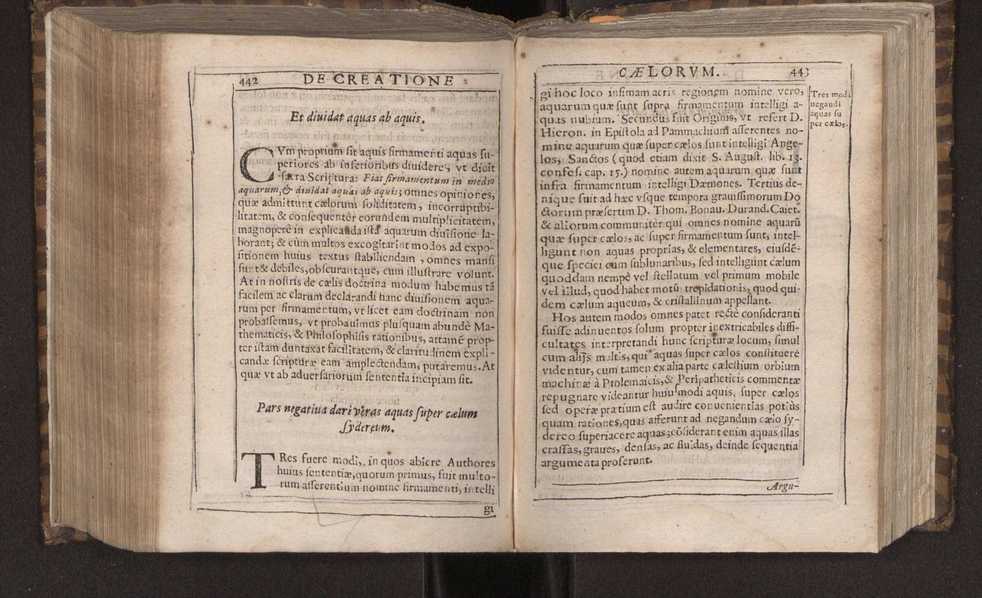 442 DE CREATIONE
Et diuidat aquas ab aquis.
CVm proprium sit aquis firmamenti aquas su-
periores ab inferioribus diuidere, vt dicit
sacra Scriptura: Fiat firmamentum in medio
aquarum, & diuidat aquas ab aquis; omnes opiniones,
quæ admittunt cælorum soliditatem, incorruptibi-
litatem, & consequentèr eorundem multiplicitatem,
magnoperè in explicanda ista aquarum diuisione la-
borant; & cùm multos excogitarint modos ad expo-
sitionem huius textus stabiliendam, omnes mansi
sunt & debiles, obscurantque, cum illustrare volunt.
At in nostris de cælis doctrina modum habemus tã
facilem ac clarum declarandi hanc diuisionem aqua-
rum per firmamentum, vt licet eam doctrinam non
probassemus, vt probauimus plusquam abundè Ma-
thematicis, & Philosophisis rationibus, attamè prop-
ter istam duntaxat facilitatem, & claritudinem expli-
candæ scripturæ eam amplectendam, putaremus. At
quæ vt ab aduersariorum sententia incipiam sit.
Pars negatiua dari veras aquas super cælum
sydereum.
TRes fuere modi, in quos abiere Authores
huius sententiæ, quorum primus, fuit multo-
rum asserentium nomine firmamenti, intelli
gi
CÆLORVM. 443
gi hoc loco infimam aeris regionem nomine, vero,
aquarum quæ sunt supra firmamentum intelligi a-
quas nubium. Secundus fuit Originis, vt refert D.
Hieron. in Epistola ad Pammachium asserentes no-
mine aquarum quæ super cælos sunt intelligi Ange-
los, Sanctos (quod etiam dixit S. August. lib. 13.
confes. cap. 15.) nomine autem aquarum quæ sunt
infra firmamentum intelligi Dæmones. Tertius de-
nique fuit ad hæc vsque tempora grauissimorum Do
ctorum præsertum D. Thom. Bonau. Durand. Caiet.
& aliorum communitèr qui omnes nomine aquarũ
quæ super cælos, ac super firmamentum sunt, intel-
ligunt non aquas proprias, & elementares, eiusdé-
que speciei cum sublunaribus, sed intelligunt cælum
quoddam nempè vel stellatum vel primum mobile
vel illud, quod habet motũ trepidationis, quod qui-
dem cælum aqueum, & cristallinum appellant.
Hos autem modos omnes patet rectè consideranti
fuisse adinuentos solum propter inextricabiles diffi-
cultates interpretandi hunc scripturæ locum, simul
cum alijs multis, qui aquas super cælos constituere
videntur, cum tamen ex alia parte cælestium orbium
machinæ à Ptolemaicis, & Peripatheticis commentæ
repugnare videantur huiusmodi aquis, super cælos
sed operæ prætium est audire conuenientias potiùs
quam rationes, quas afferunt ad negandum cælo sy-
dereo superiacere aquas; cõsiderant enim aquas illas
crassas, graues, densas, ac fluidas, deinde sequentia
argumenta proferunt.
Argu-
Tres modi
negandi
aquas su
per cælos.